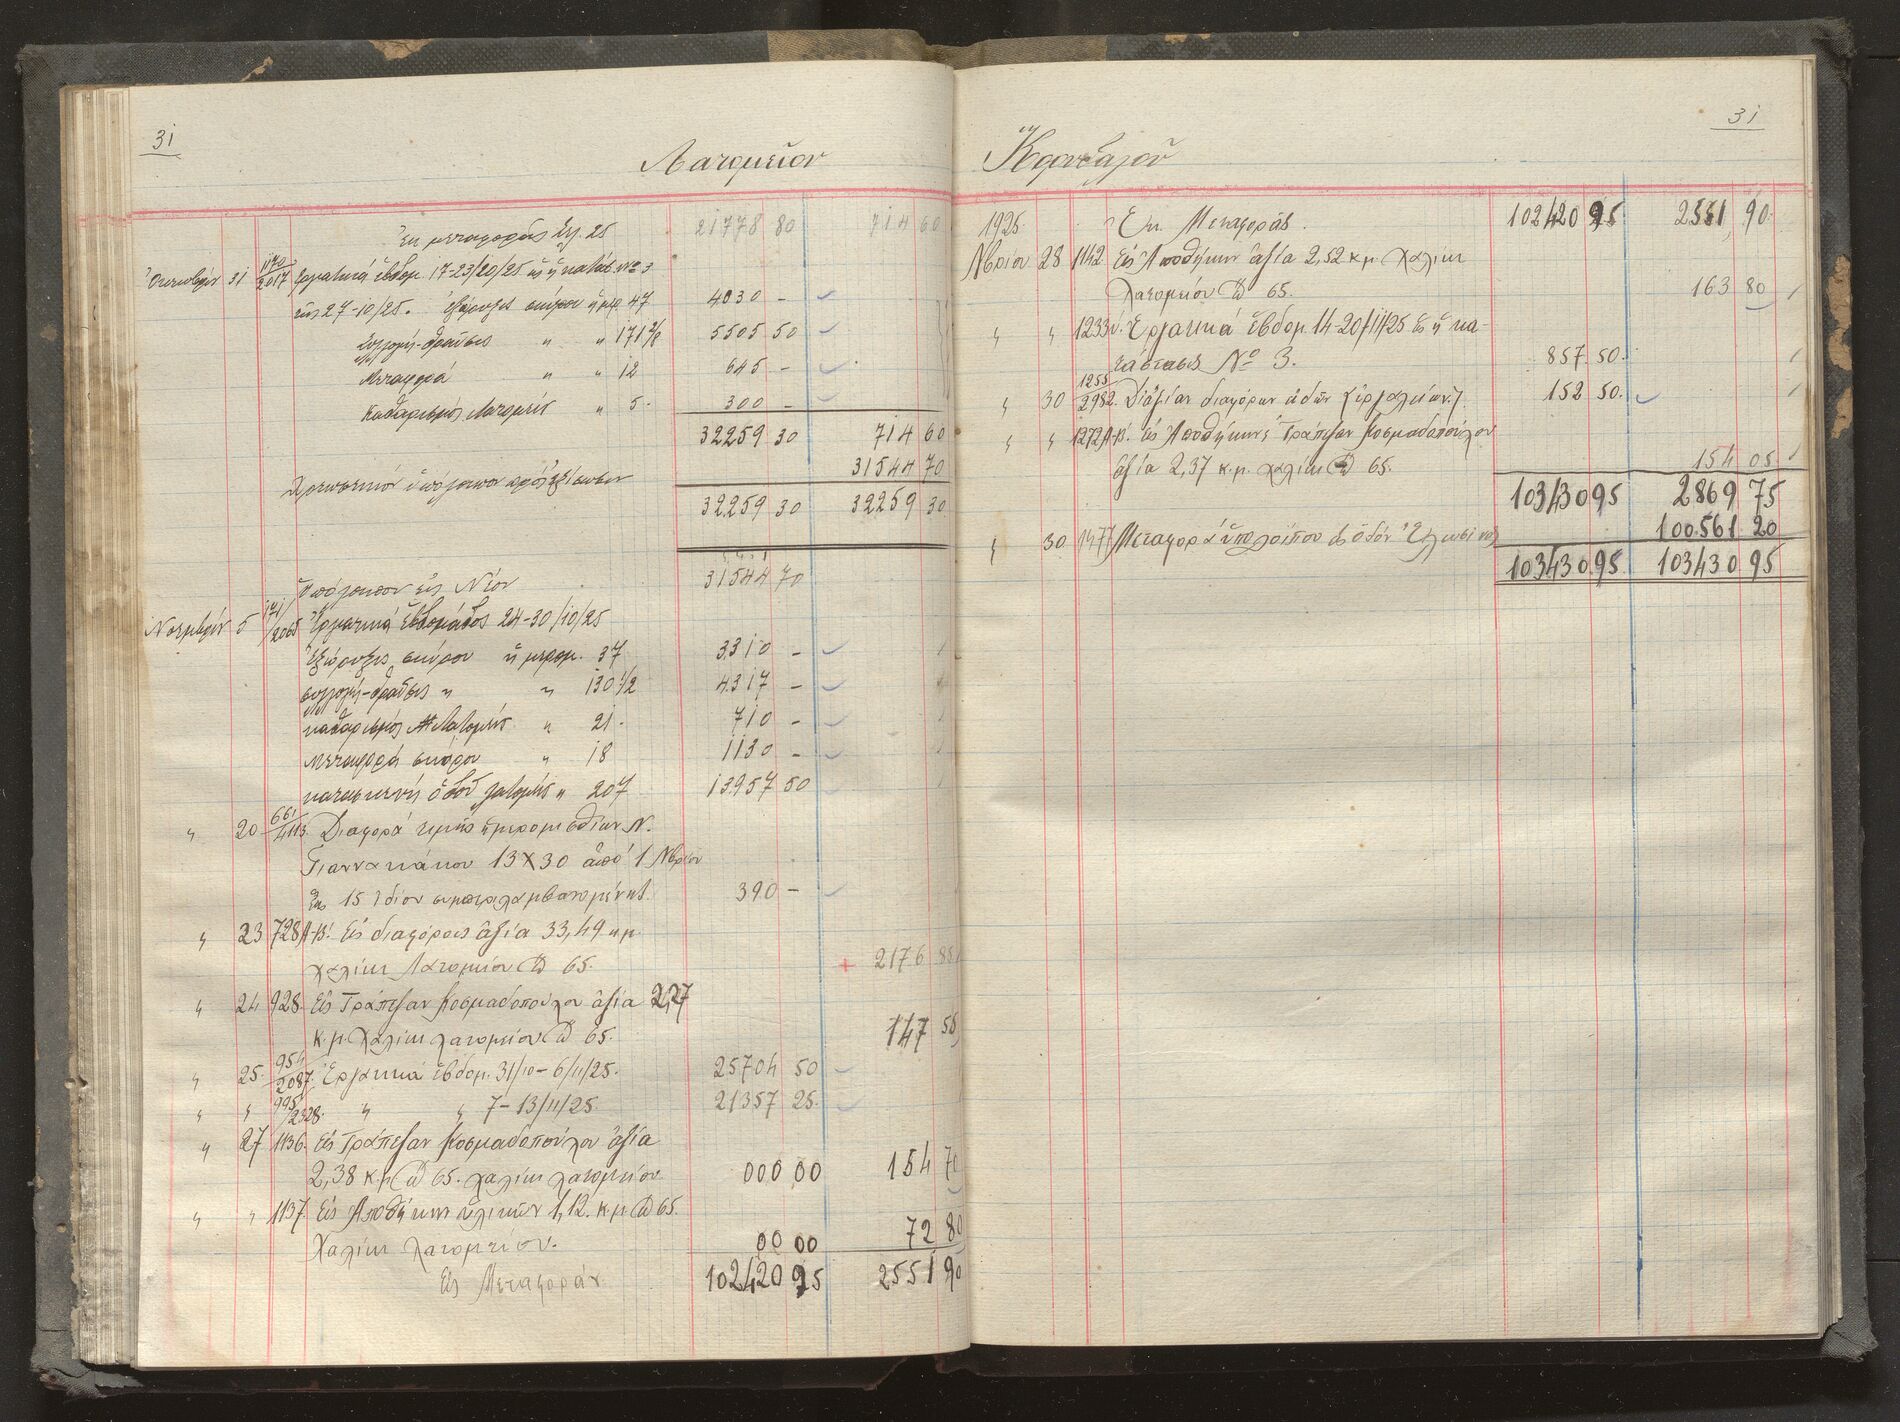 31
Λατομεῖον
Ἐκ μεταφορᾶς Σελ. 25 21778 80 714 60
Ὀκτωβρίου 31 170/2017 Ἐργατικά ἑβδομ. 17-23/10/25 ὡς ἡ κατάσ. Νο 3
τῆς 27-10/25. ἐξόρυξις σκύρου ἡμερ. 47 4030 -
Συλλογή-θραῦσις " " 171 2/8 5505 50
Μεταφορά " " 12 645 -
Καθαρισμός Λατομείου " 5. 300 -
32259 30 714 60
Χρεωστικόν ὑπόλοιπον πρός ἐξίσωσιν 31544 70
32259 30 32259 30
Ὑπόλοιπον εἰς Νέον 31544 70
Νοεμβρίου 5 171/2065 Ἐργατικά Ἑβδομάδος 24-30/10/25
Ἐξόρυξις σκύρου ἡμερομ. 37 3310 -
συλλογή-θραῦσις " " 130 1/2 4317 -
καθαρισμός Λατομείου " 21. 710 -
Μεταφορά σκύρου " 18 1130 -
κατασκευή ὁδοῦ λατομείου " 207 13957 50
" 20 661/4113 Διαφορά τιμῆς ἡμερομισθίων Ν.
Γιαννακάκου 13 Χ 30 ἀπό 1 Νβρίου
ἕως 15 ἰδίου συμπεριλαμβανομένης. 390 -
" 23 728 Α-Β! Εἰς διαφόρους ἀξία 33,49 κ.μ.
χαλίκι Λατομείου @ 65. + 2176 85
" 24 928. Εἰς Τράπεζαν Κοσμαδοπούλου ἀξία 2,27
κ.μ. Χαλίκι λατομείου @ 65. 147 55
" 25. 954/2087. Ἐργατικά ἑβδομ. 31/10-6/11/25. 25704 50
" " 995/2328. " " 7-13/11/25 21357 25.
" 27 1136. Εἰς Τράπεζαν Κοσμαδοπούλου ἀξία
2,38 κ.μ @ 65. χαλίκι λατομείου 000 00 154 70
" " 1137. Εἰς Ἀποθήκην ὑλικῶν 1,12. κ.μ @ 65.
Χαλίκι λατομείου. 00 00 72 80
Εἰς Μεταφοράν. 102420 95 2551 90
31
Κορυδαλοῦ
1925. Ἐκ Μεταφορᾶς. 102420 95 2551 90.
Νβρίου 28 1142 Εἰς Ἀποθήκην ἀξία 2,52 κ.μ. Χαλίκι
λατομείου @ 65. 163 80
" " 1233 ὑ. Ἐργατικά ἑβδομ. 14-20/11/25 ὡς ἡ κα-
τάστασις Νο 3. 857. 50.
" 30 1255/2982. Δι' ἀξίαν διαφόρων εἰδῶν (ἐργαλείων) 152 50.
" " 1272 Α-Β! Εἰς Ἀποθήκην & Τράπεζαν Κοσμαδοπούλου
ἀξία 2,37 κ.μ. χαλίκι @ 65. 154 05
103430 95 2869 75
" 30. 1477 Μεταφορά ὑπολοίπου εἰς ὁδόν Ἐλευσῖνος 100.561 20
103430 95. 103430 95